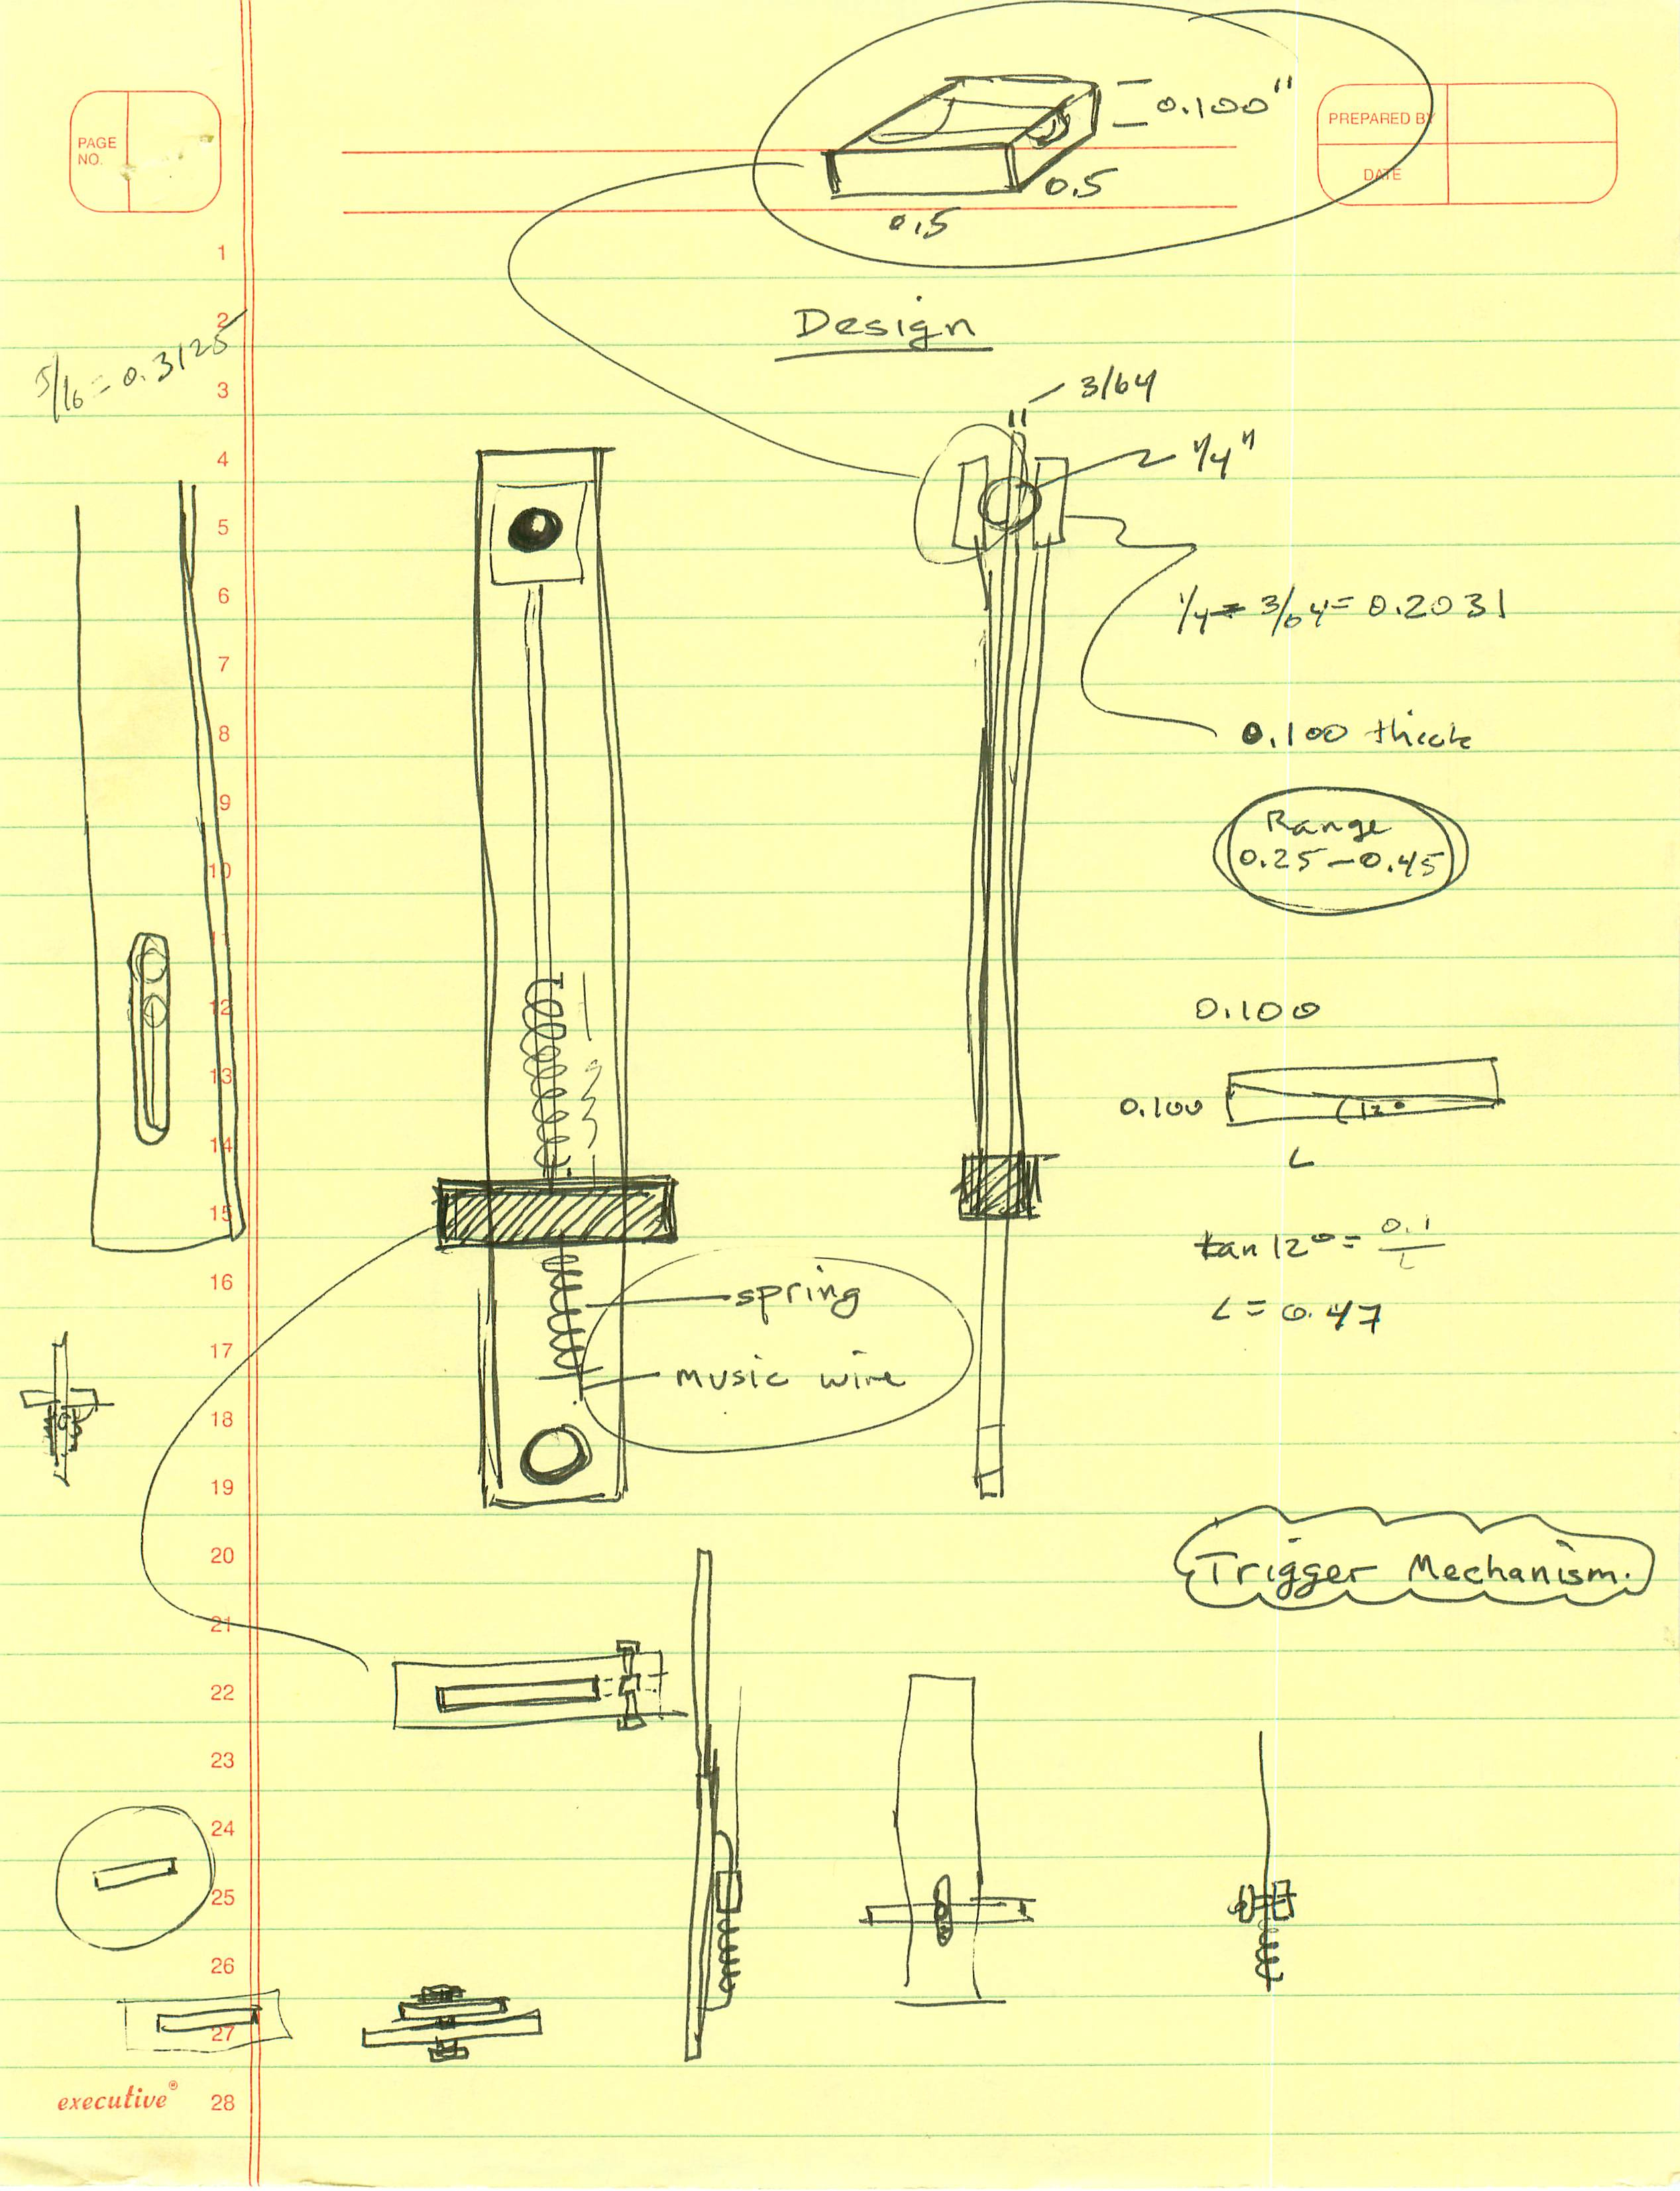 0.100"
PAGE
NO.
PREPARED BY
DATE
0.5
0.5
1
Design
2
5/16 = 0.3125
3
3/64
4
1/4"
5
6
1/4 - 3/64 = 0.2031
7
8
0.100 thick
9
Range
0.25 - 0.45
10
11
12
0.100
13
0.100
12°
14
L
15
tan 12° = 0.1/L
16
spring
L = 0.47
17
music wire
18
19
20
Trigger Mechanism.
21
22
23
24
25
26
27
executive®
28